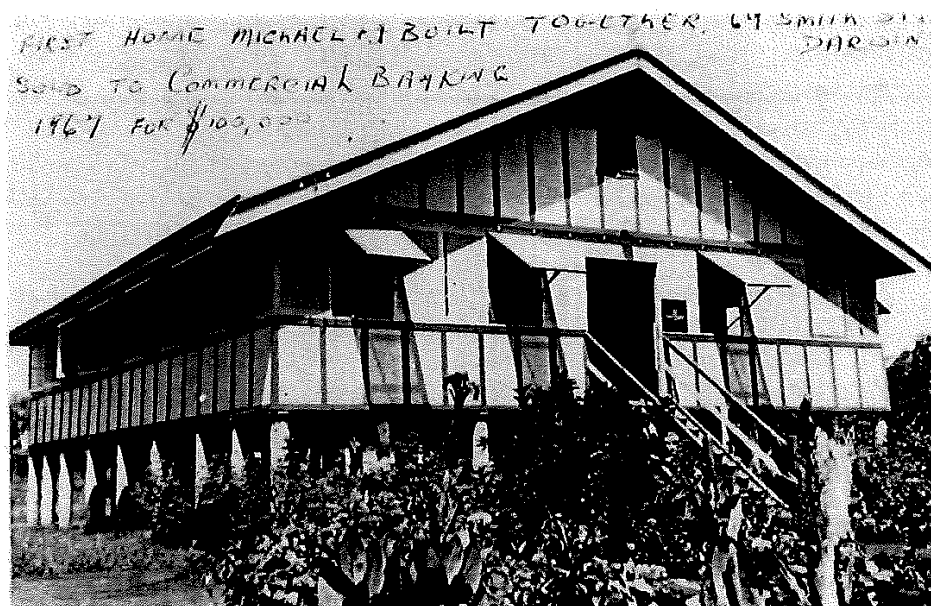 FIRST HOME MICHAEL & I BUILT TOGETHER, 64 SMITH ST
DARWIN
SOLD TO COMMERCIAL BANKING
1967 FOR $100,000